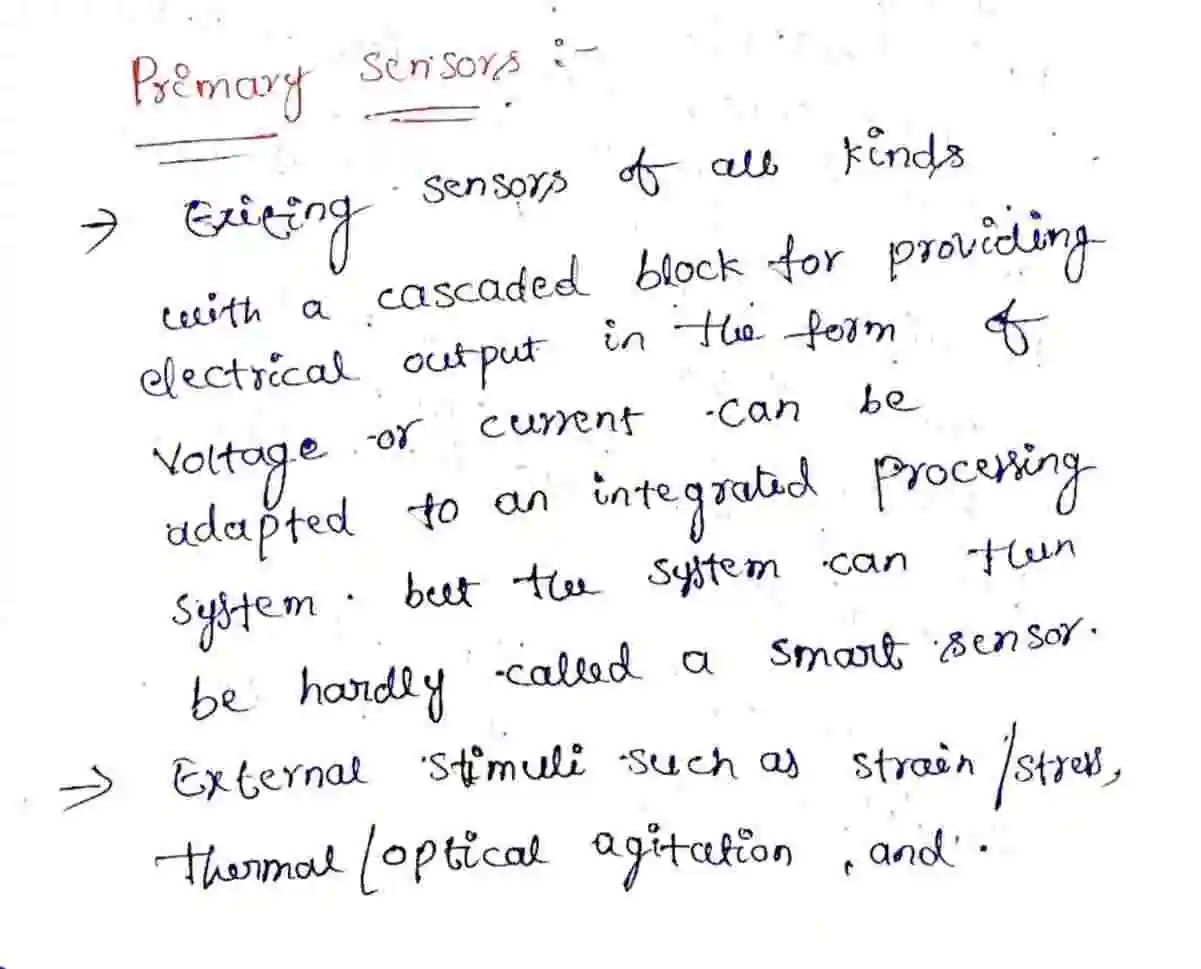 Primary sensors :-
→ Exicing sensors of all kinds
with a cascaded block for providing
electrical output in the form of
Voltage or current can be
adapted to an integrated processing
system. but the system can then
be hardly called a smart sensor.
→ External stimuli such as strain/stress,
thermal/optical agitation, and